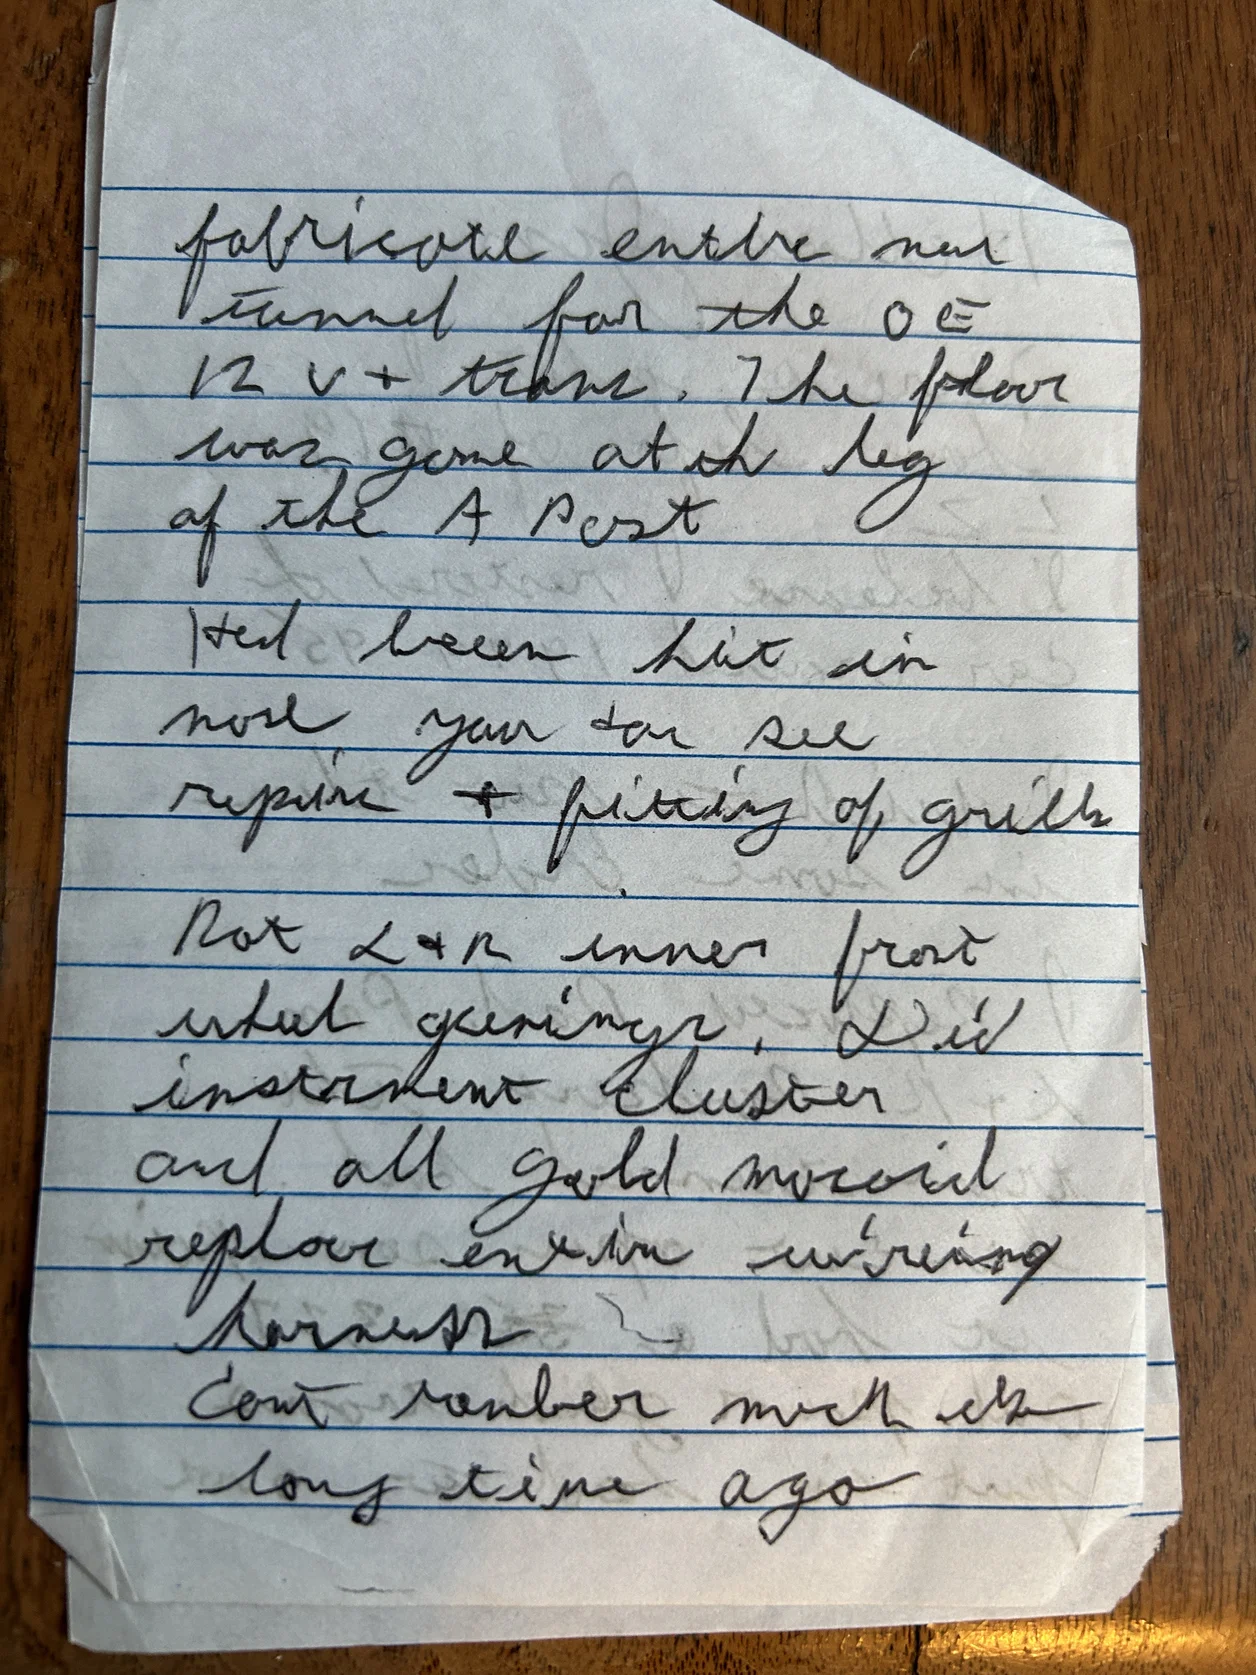 fabricate entire new
tunnel for the OE
12 V + trans. The floor
was gone at th leg
of the A Post
Had been hit in
nose you can see
repair + fitting of grill
Rot L + R inner front
wheel openings. Did
instrment cluster
and all gold
replace entire wireing
harness
Cant rember much else
long time ago